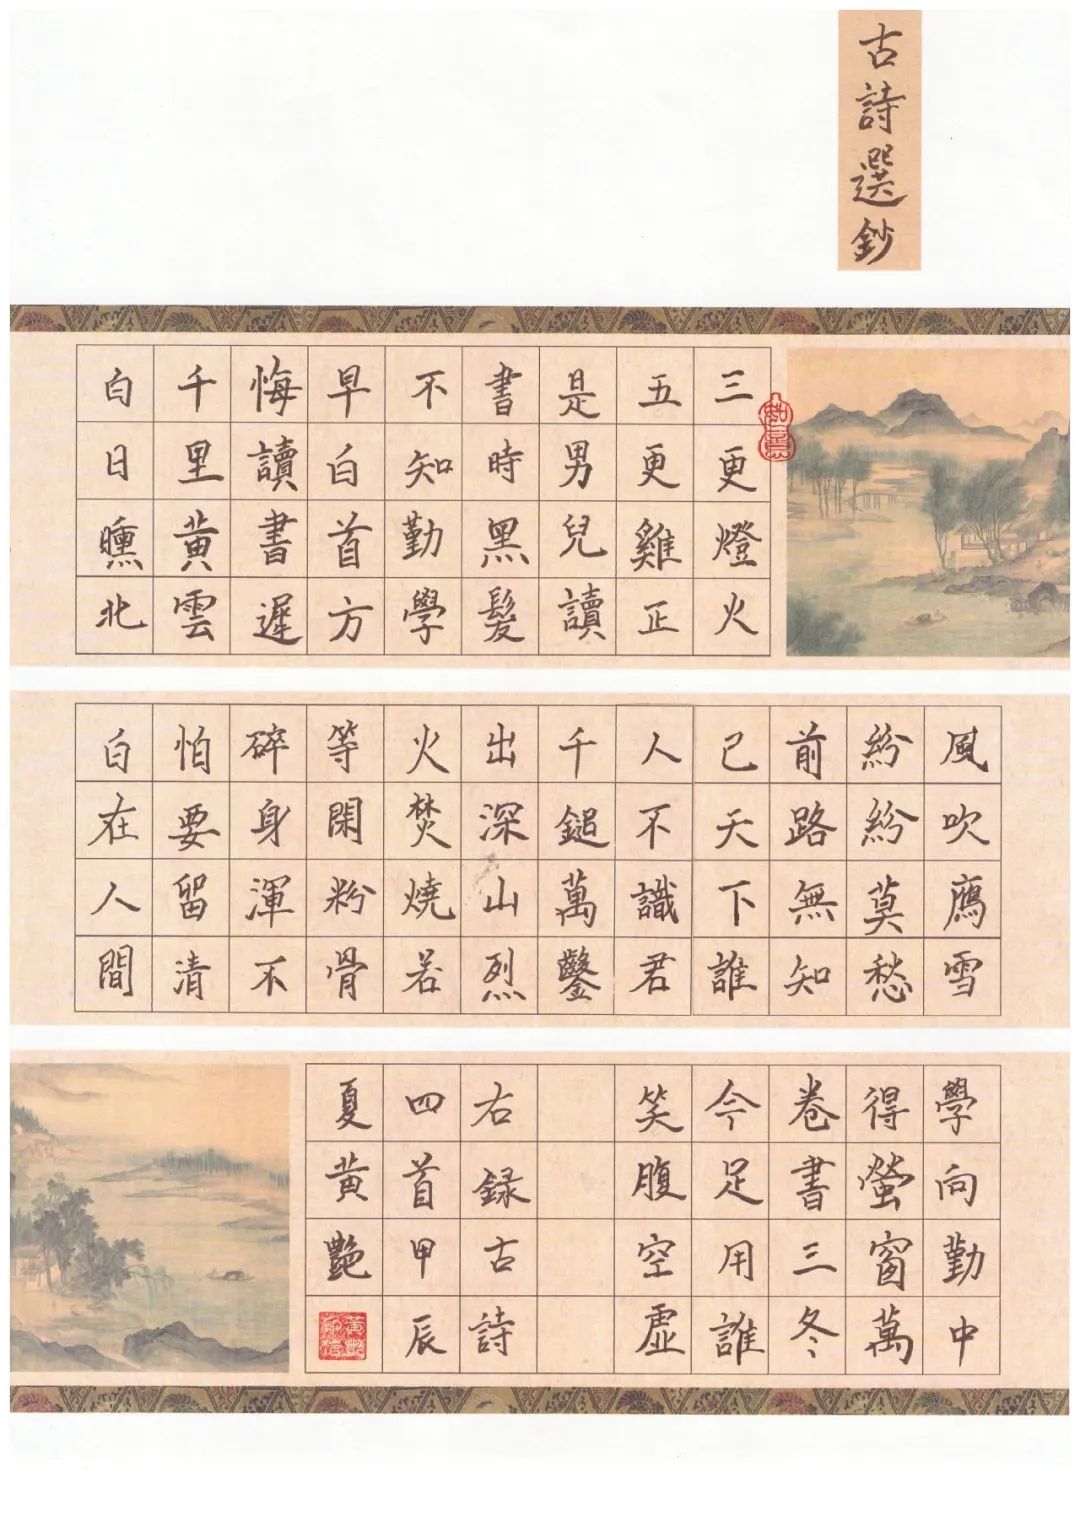 古詩選鈔
三更燈火
五更雞正
是男兒讀
書時黑髮
不知勤學
早白首方
悔讀書遲
千里黄雲
白日曛北
風吹鴈雪
紛紛莫愁
前路無知
已天下誰
人不識君
千鎚萬鑿
出深山烈
火焚燒若
等閑粉骨
碎身渾不
怕要留清
白在人間
學向勤中
得螢窗萬
卷書三冬
今足用誰
笑腹空虛
右録古詩
四首甲辰
夏黄艷